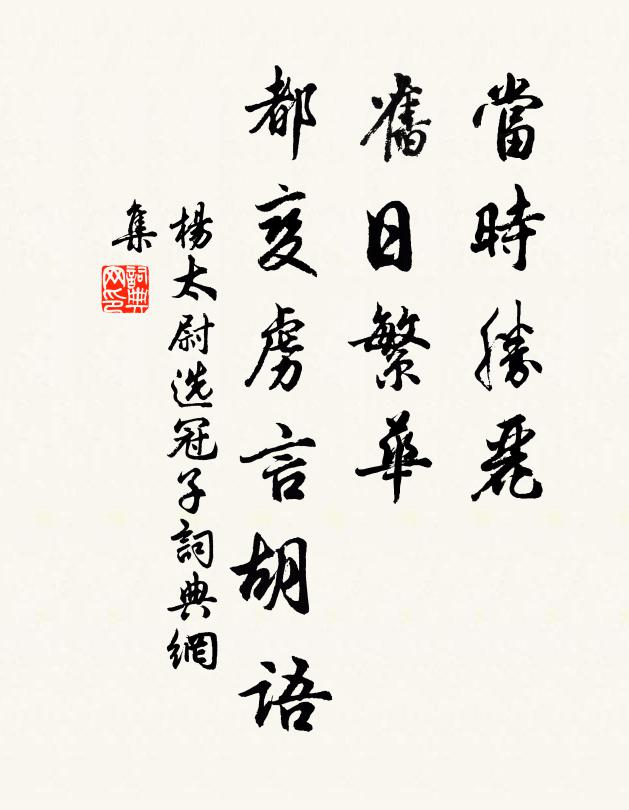 當時勝麗
舊日繁華
都变虜言胡語
楊太尉选冠子詞典網
集
詞典
网印